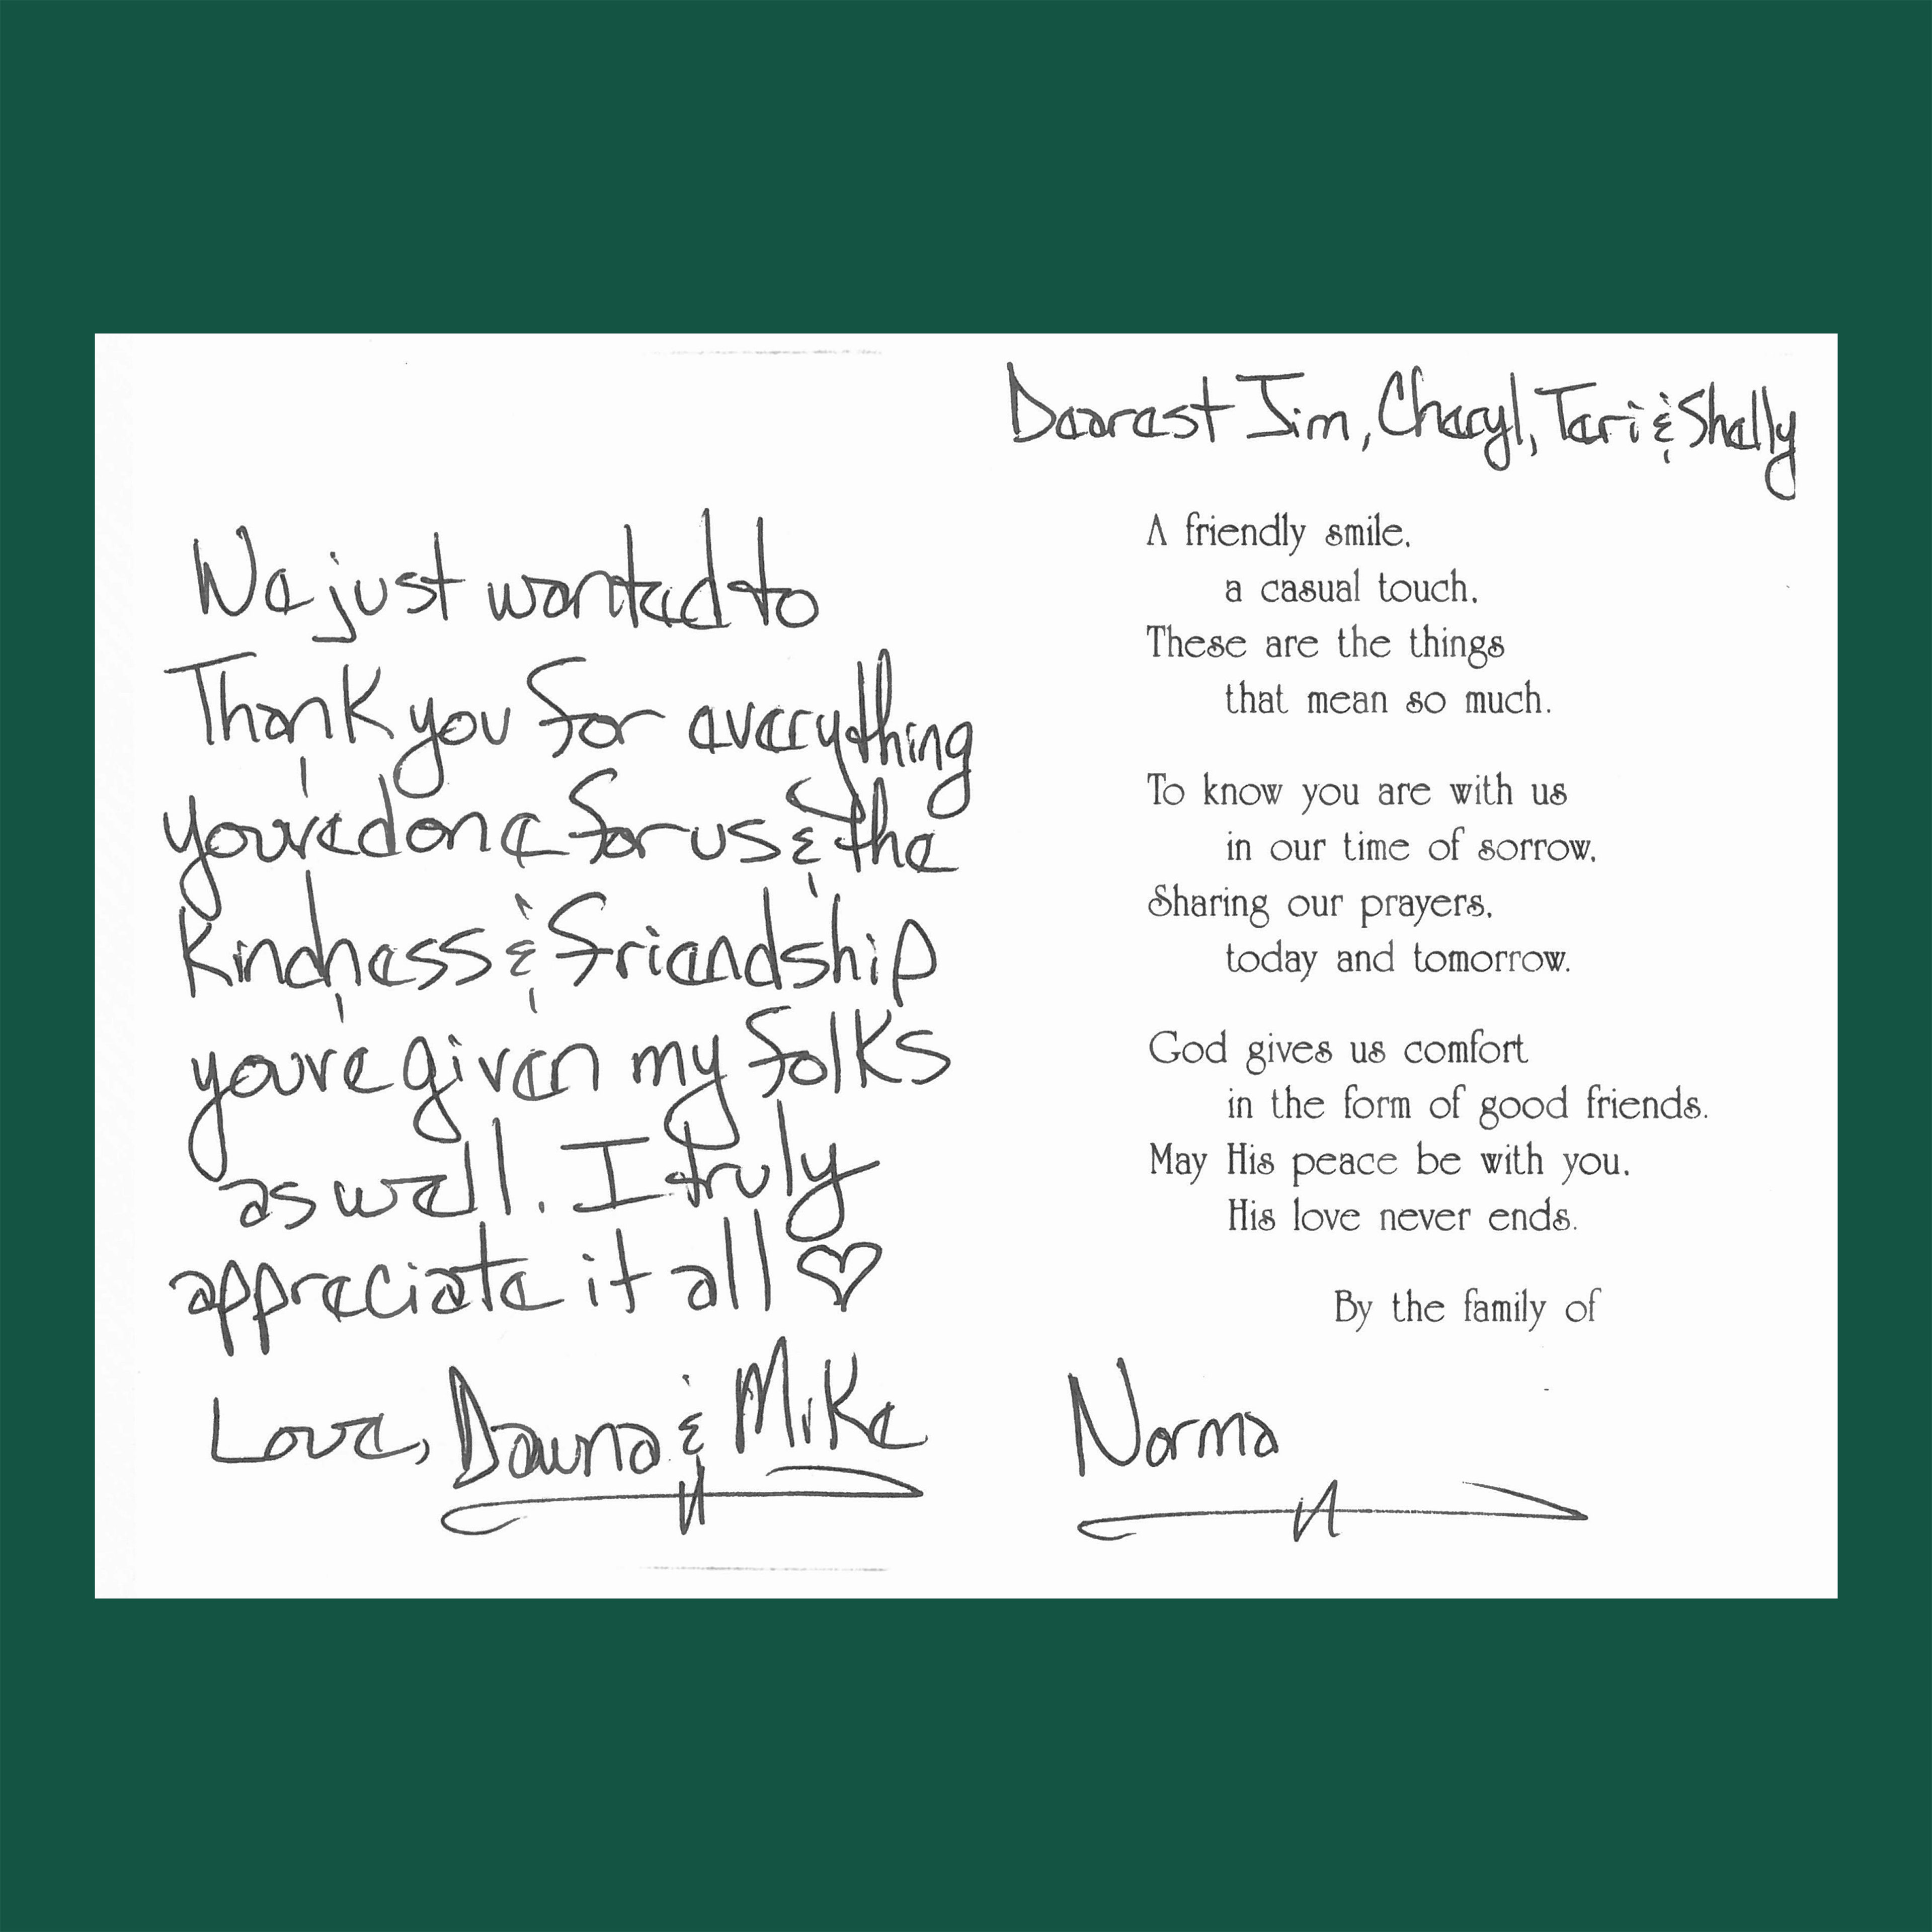 Dearest Jim, Cheryl, Teri & Shelly
We just wanted to
Thank you for everything
you've done for us & the
Kindness & friendship
you've given my folks
as well. I truly
appreciate it all ♡
Love, Dawna & Mike
A friendly smile,
a casual touch,
These are the things
that mean so much.
To know you are with us
in our time of sorrow,
Sharing our prayers,
today and tomorrow.
God gives us comfort
in the form of good friends.
May His peace be with you,
His love never ends.
By the family of
Norma